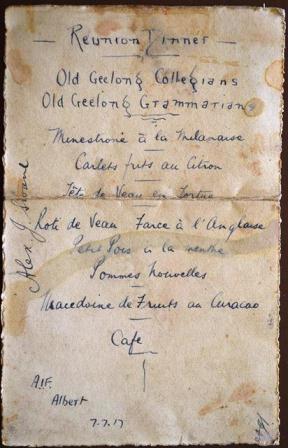 — Reunion Dinner —
Old Geelong Collegians
Old Geelong Grammarians
Minestrone à la Milanaise
Carlets frits au Citron
Tête de Veau en Tortue
Rôte de Veau Farce à l'Anglaise
Petit Pois à la menthe
Pommes Nouvelles
Macedoine de Fruits au Curacao
Cafe
A.I.F.
Albert
7.7.17
Alex J.